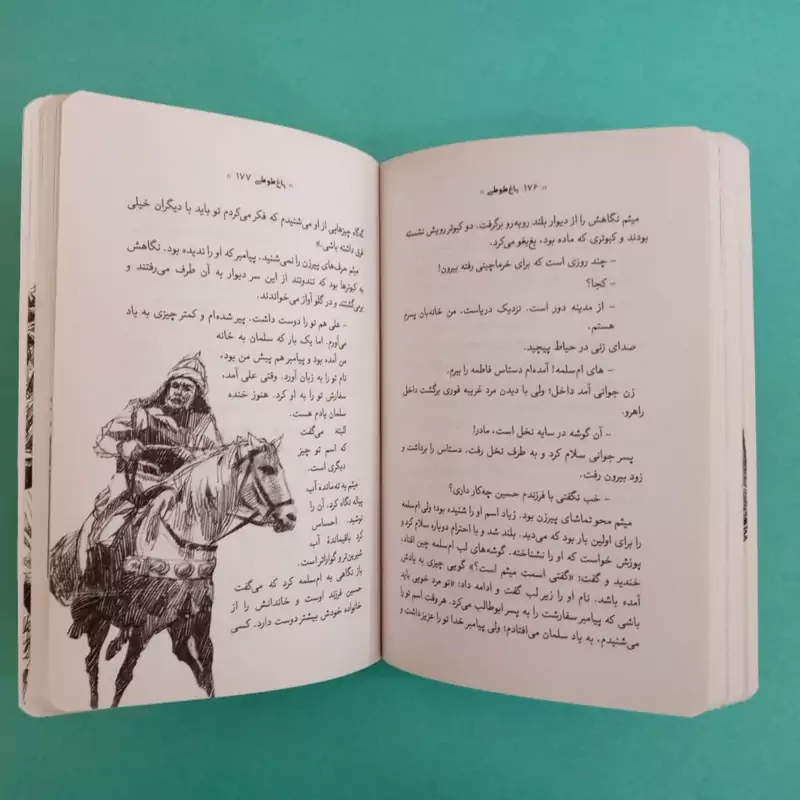 « ۱۷۶ باغ طوطی »
میثم نگاهش را از دیوار بلند روبه‌رو برگرفت. دو کبوتر رویش نشسته
بودند و کبوتری که ماده بود، بغ‌بغو می‌کرد.
- چند روزی است که برای خرماچینی رفته بیرون!
- کجا؟
- از مدینه دور است. نزدیک دریاست. من خانه‌بان پسرم
هستم.
صدای زنی در حیاط پیچید.
- های ام‌سلمه! آمده‌ام دستاس فاطمه را ببرم.
زن جوانی آمد داخل؛ ولی با دیدن مرد غریبه فوری برگشت داخل
راهرو.
- آن گوشه در سایه نخل است، مادر!
پسر جوانی سلام کرد و به طرف نخل رفت. دستاس را برداشت و
زود بیرون رفت.
- خب نگفتی با فرزندم حسین چه‌کار داری؟
میثم محو تماشای پیرزن بود. زیاد اسم او را شنیده بود؛ ولی ام‌سلمه
را برای اولین بار بود که می‌دید. بلند شد و با احترام دوباره سلام کرد و
پوزش خواست که او را نشناخته. گوشه‌های لب ام‌سلمه چین افتاد.
خندید و گفت: «گفتی اسمت میثم است؟» گویی چیزی به یادش
آمده باشد. نام او را زیر لب گفت و ادامه داد: «تو مرد خوبی باید
باشی که پیامبر سفارشت را به پسر ابوطالب می‌کرد. هر وقت اسم تو را
می‌شنیدم، به یاد سلمان می‌افتادم؛ ولی پیامبر خدا تو را عزیز داشت و
« باغ طوطی ۱۷۷ »
گه‌گاه چیزهایی از او می‌شنیدم که فکر می‌کردم تو باید با دیگران خیلی
فرق داشته باشی.»
میثم حرف‌های پیرزن را نمی‌شنید. پیامبر که او را ندیده بود. نگاهش
به کبوترها بود که تندوتند از این سر دیوار به آن طرف می‌رفتند و
برمی‌گشتند و در گلو آواز می‌خواندند.
- علی هم تو را دوست داشت. پیر شده‌ام و کمتر چیزی به یاد
می‌آورم. اما یک بار که سلمان به خانه
من آمده بود و پیامبر هم پیش من بود،
نام تو را به زبان آورد. وقتی علی آمد،
سفارش تو را به او کرد. هنوز خنده
سلمان یادم هست.
البته می‌گفت
که اسم تو چیز
دیگری است.
میثم به ته‌مانده آب
پیاله نگاه کرد. آن را
نوشید. احساس
کرد باقیماندهٔ آب
شیرین‌تر و گواراتر است.
باز نگاهی به ام‌سلمه کرد که می‌گفت
حسین فرزند اوست و خاندانش را از
خانواده خودش بیشتر دوست دارد. کسی